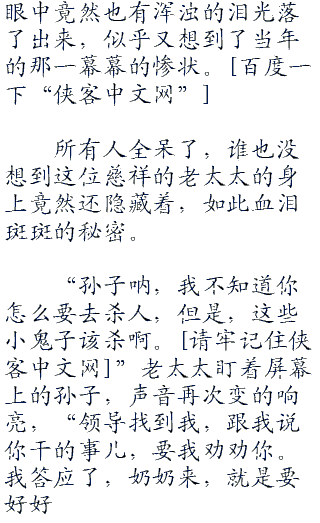 眼中竟然也有浑浊的泪光落
了出来，似乎又想到了当年
的那一幕幕的惨状。[百度一
下“侠客中文网”]
所有人全呆了，谁也没
想到这位慈祥的老太太的身
上竟然还隐藏着，如此血泪
斑斑的秘密。
“孙子呐，我不知道你
怎么要去杀人，但是，这些
小鬼子该杀啊。[请牢记住侠
客中文网]”老太太盯着屏幕
上的孙子，声音再次变的响
亮，“领导找到我，跟我说
你干的事儿，要我劝劝你。
我答应了，奶奶来，就是要
好好